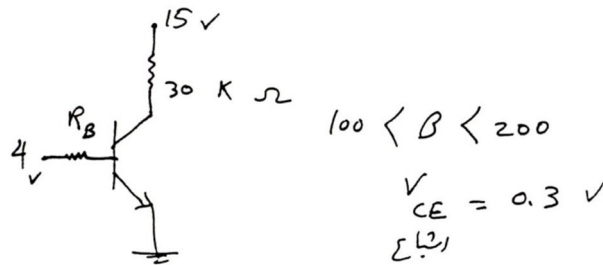 15 v
30 K Ω
R_B
4 v
100 < β < 200
V_CE = 0.3 v
اشباع